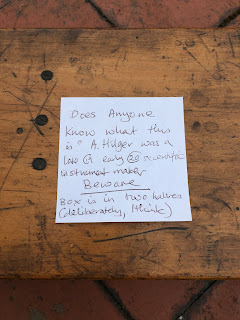 Does Anyone
Know what this
is? A. Hilger was a
late 19 early 20 scientific
instrument maker
Beware
Box is in two halves
(deliberately, I think)